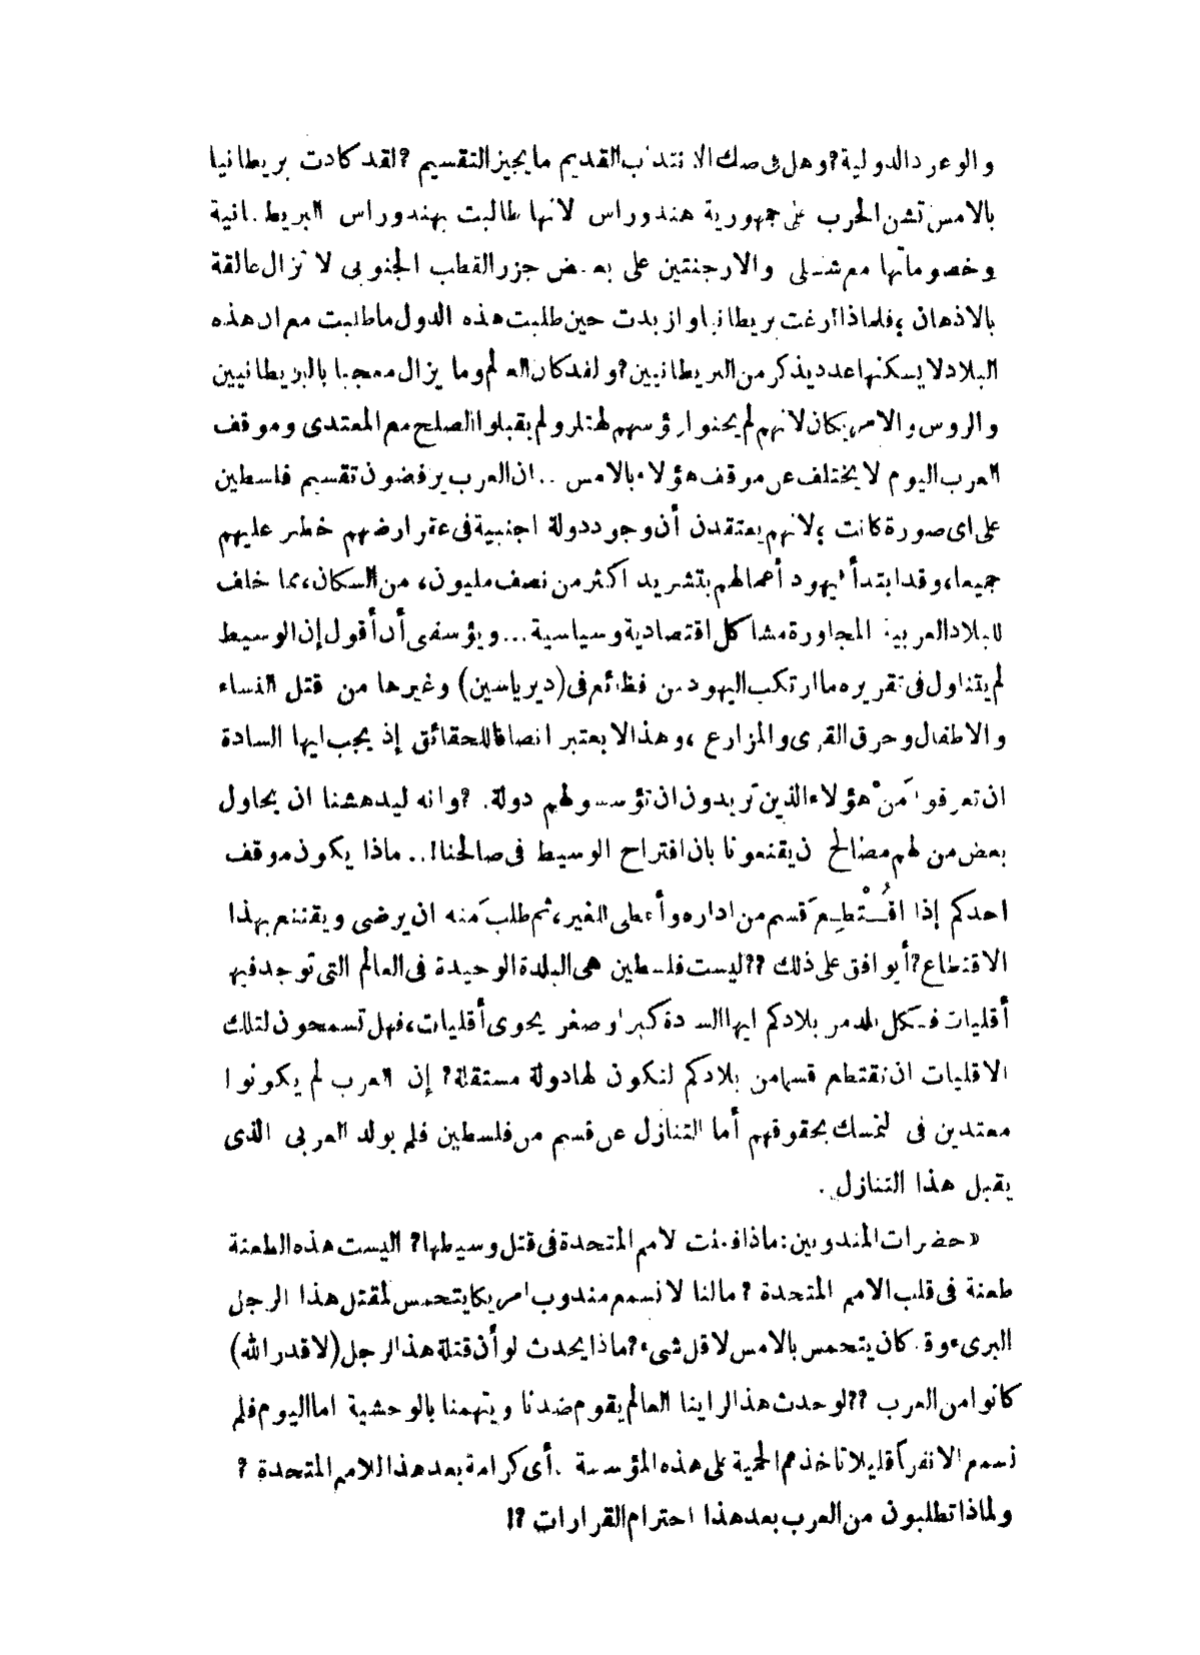 والوعود الدولية؟ وهل في صك الانتداب القديم ما يجيز التقسيم ؟ لقد كادت بريطانيا
بالامس تشن الحرب على جمهورية هندوراس لانها طالبت بهندوراس البريطانية
وخصوماتها مع شيلي والارجنتين على بعض جزر القطب الجنوبى لا تزال عالقة
بالاذهان ؛ فلماذا ارغت بريطانيا وازبدت حين طلبت هذه الدول ما طلبت مع ان هذه
البلاد لا يسكنها عدد يذكر من البريطانيين؟ ولقد كان العالم وما يزال معجبا بالبريطانيين
والروس والامريكان لانهم لم يحنوا رؤسهم لهتلر ولم يقبلوا الصلح مع المعتدى وموقف
العرب اليوم لا يختلف عن موقف هؤلاء بالامس .. ان العرب يرفضون تقسيم فلسطين
على اى صورة كانت ؛ لانهم يعتقدن أن وجود دولة اجنبية فى عقر ارضهم خطر عليهم
جميعا، وقد ابتدأ اليهود أعمالهم بتشريد اكثر من نصف مليون، من السكان، مما خلف
للبلاد العربية المجاورة مشاكل اقتصادية وسياسية ... ويؤسفى أن أقول إن الوسيط
لم يتناول فى تقريره ما ارتكب اليهود من فظائع فى (دير ياسين) وغيرها من قتل النساء
والاطفال وحرق القرى والمزارع ، وهذا لا يعتبر انصافا للحقائق إذ يجب ايها السادة
ان تعرفوا مَنْ هؤلاء الذين تريدون ان تؤسسوا لهم دولة. ؟ وانه ليدهشنا ان يحاول
بعض من لهم مصالح ن يقنعونا بان اقتراح الوسيط فى صالحنا!.. ماذا يكون موقف
احدكم إذا اقُتْطِعَ قسم من اداره وأعطى للغير، ثم طلبَ منه ان يرضى ويقتنع بهذا
الاقتطاع؟ أيوافق على ذلك ؟؟ ليست فلسطين هى البلدة الوحيدة فى العالم التى توجد فيها
أقليات فكل بلد من بلادكم ايها السادة كبر او صغر يحوى أقليات، فهل تسمحون لتلك
الاقليات ان تقتطع قسما من بلادكم لتكون لها دولة مستقلة؟ إن العرب لم يكونوا
معتدين فى تمسك بحقوقهم أما التنازل عن قسم من فلسطين فلم يولد العربى الذى
يقبل هذا التنازل .
«حضرات المندوبين: ماذا فعلت لامم المتحدة فى قتل وسيطها؟ اليست هذه الطعنة
طعنة فى قلب الامم المتحدة ؟ مالنا لا نسمع مندوب امريكا يتحمس لمقتل هذا الرجل
البرىء وقد كان يتحمس بالامس لاقل شىء؟ ماذا يحدث لو أن قتلة هذا الرجل (لا قدر الله)
كانوا من العرب ؟؟ لو حدث هذا لراينا العالم يقوم ضدنا ويتهمنا بالوحشية اما اليوم فلم
نسمع الا نفراً قليلا تاخذهم الحمية على هذه المؤسسة . أى كرامة بعد هذا للامم المتحدة ؟
ولماذا تطلبون من العرب بعد هذا احترام القرارات ؟!